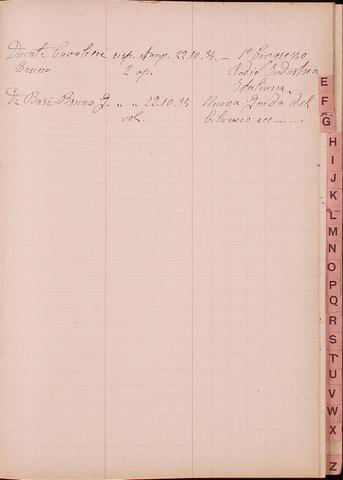 Duca Cavaliere risp. stamp. 22.10.34 — 1° Congresso
Bruno 2 op. Radio Industria
Italiana.
De Bari Bruno G. " " 22.10.34 Nuova Guida del
vol. bilancio ecc ....
E
F
G
H
I
J
K
L
M
N
O
P
Q
R
S
T
U
V
W
X
Z